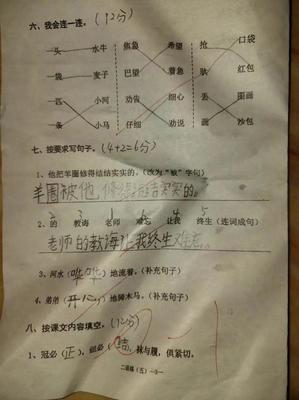 六、我会连一连。(12分)
头 水牛 焦急 希望 抢 口袋
袋 麦子 巴望 着急 红包
匹 小河 劝告 细心 丢 画画
条 小马 仔细 劝说 画 沙包
七、按要求写句子。(4+2=6分)
1、他把羊圈修得结结实实的。(改为"被"字句)
羊圈被他修得结结实实的。
2 3 1 6 4 5
2、的 教诲 老师 难忘 让我 终生 (连词成句)
老师的教海让我终生难忘。
3、河水(哗哗)地流着。(补充句子)
4、弟弟(开心)地骑木马。(补充句子)
八、按课文内容填空。(12分)
1、冠必(正),纽必(结),袜与履,俱紧切。
二语练(五)—3—